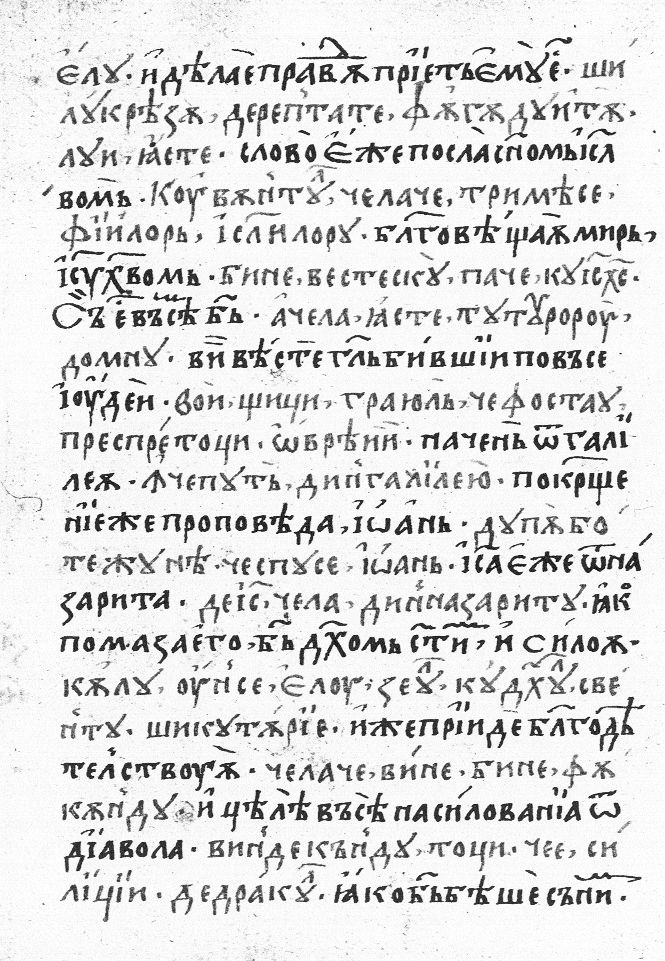 е҆лꙋ · и҆ дѣлае правⷣꙗ прїе́тъ е҆мꙋ̀ е҆ⷭ҇ · ши
лꙋ́крѣзѫ, дерепⷮтате, фѫгѫдꙋитѫ,
лꙋи, ꙗ҆сте · сло́во є҆же посла̀ сн҃омь і҆сл҃
вомъ · Коувѫнтꙋⷧ, челаче, тримѣсе,
фїйлорь, і҆сл҃илору · бл҃говѣщаѧ миръ,
і҆су҃х҃вомь · бине, вестескꙋ, паче, кꙋ і҆с҃хс҃ ·
съ́ е҆ въсѣ бг҃ъ · а҆чела, ꙗ҆сте, тꙋтꙋророу,
домнꙋ · ви҆ вѣсте гл҃ь бившїи по въсе
і҆оу҆деи · вой, щици, граюль, че фостаꙋ,
преспре тоци · ѡ҆врѣїй · начень ѿ галї
леѧ · ꙟчепꙋть, дин галїлею · по крⷭ҇ще
нїе же проповѣда, і҆ѡ҆а́нь · дꙋпѫ бо
тежꙋнѣ · че спꙋсе, і҆ѡ҆ань · і҆с҃а є҆же ѿ на
зарита · де і҆с҃, чела, дин назаритꙋ · ꙗ҆кѡ
помаза его, бг҃ъ дх҃омь ст҃и҆мь, и҆ силоѫ ·
кѫлꙋ, оу҆нсе, є҆лоу, зеꙋⷧ, кꙋ дꙋхꙋⷧ, све
нтꙋ · ши кꙋ тѫрїе · и҆же прїиде бл҃годѣ
телствоуѧ · челаче, вине, бине, фѫ
кѫндꙋ · и҆ цѣлѣ въсѣ насилованїа ѿ
дїавола · виндекъндꙋ, тоци · чее, си
ліции · де дракꙋⷧ · ꙗ҆ко бг҃ь бѣше съ ни́мь ·